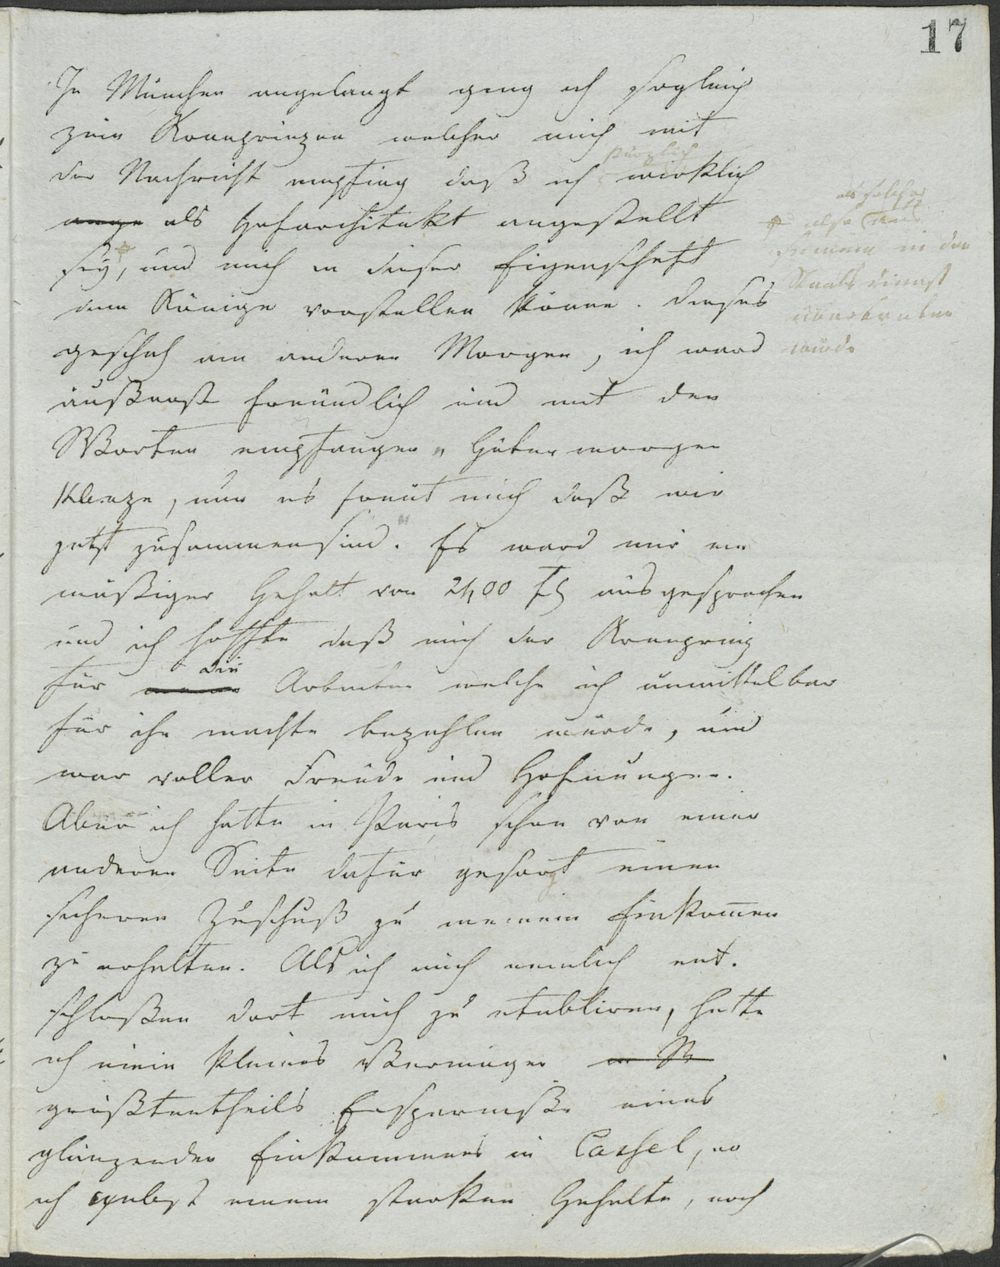 17
In München angelangt ging ich sogleich
zum Kronprinzen welcher mich mit
der Nachricht empfing daß ich wirklich
als Hofarchitekt angestellt
sey, und mich in dieser Eigenschaft
dem Könige vorstellen könne. Dieses
geschah am anderen Morgen, ich ward
äußerst freundlich und mit den
Worten empfangen „Guten morgen
Klenze, nun es freut mich daß wir
jetzt zusammen sind." Es ward mir ein
mäßiger Gehalt von 2400 Fl ausgesprochen
und ich hoffte daß mich der Kronprinz
für die Arbeiten welche ich unmittelbar
für ihn machte bezahlen würde, und
war voller Freude und Hofnungen.
Aber ich hatte in Paris schon von einer
anderen Seite dafür gesorgt einen
sicheren Zuschuß zu meinem Einkom̅en
zu erhalten. Als ich mich nemlich ent-
schloßen dort mich zu etabliren, hatte
ich mein kleines Vermögen
größtentheils Ersparniße eines
glänzenden Einkommens in Cassel, wo
ich nebst einem starken Gehalte, noch
als solcher
also
in den
Staatsdienst
übertreten
würde